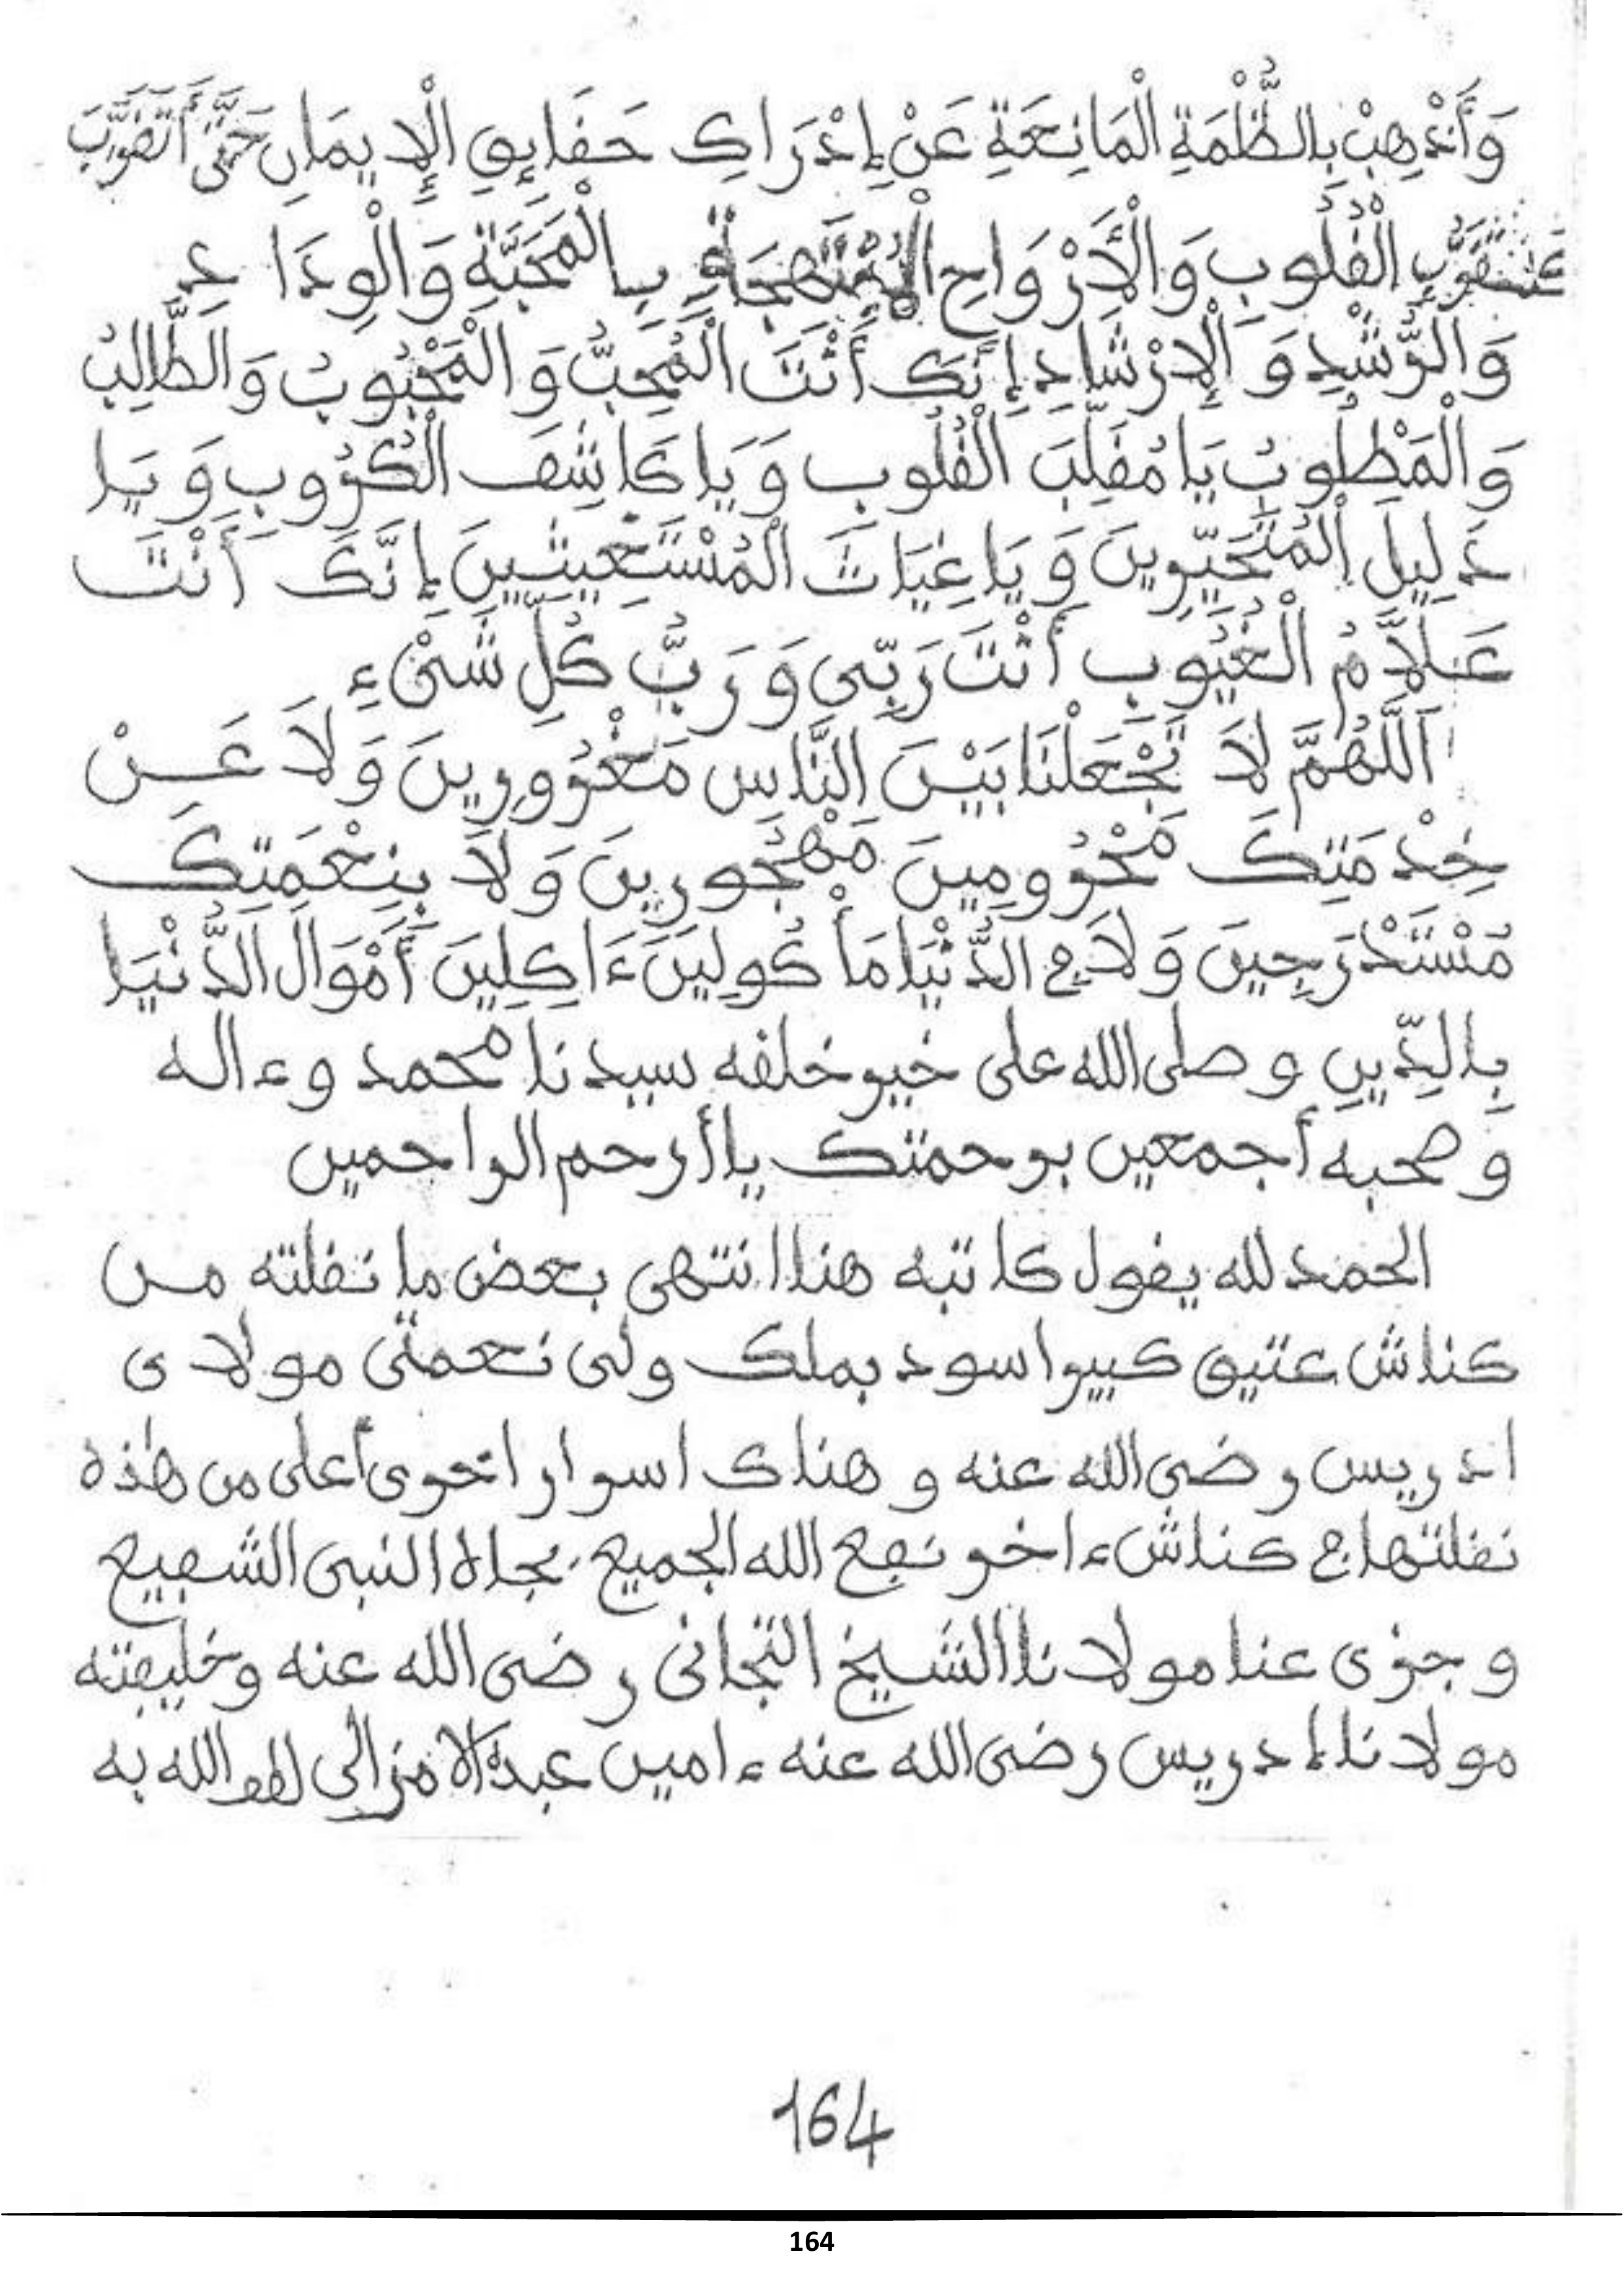 وَأَذْهِبْ بِالظُّلْمَةِ الْمَانِعَةِ عَنْ إِدْرَاكِ حَقَايِقِ الْإِيمَانِ حَتَّى أَتَصَرَّبَ
الْقُلُوبِ وَالْأَرْوَاحِ بِالْمَحَبَّةِ وَالْوِدَادِ
وَالرُّشْدِ وَالْإِرْشَادِ إِنَّكَ أَنْتَ الْمُحِبُّ وَالْمَحْبُوبُ وَالطَّالِبُ
وَالْمَطْلُوبُ يَا مُقَلِّبَ الْقُلُوبِ وَيَا كَاشِفَ الْكُرُوبِ وَيَا
دَلِيلَ الْمُتَحَيِّرِينَ وَيَا غِيَاثَ الْمُسْتَغِيثِينَ إِنَّكَ أَنْتَ
عَلَّامُ الْغُيُوبِ أَنْتَ رَبِّي وَرَبُّ كُلِّ شَيْءٍ
اَللَّهُمَّ لَا تَجْعَلْنَا بَيْنَ النَّاسِ مَغْرُورِينَ وَلَا عَنْ
خِدْمَتِكَ مَحْرُومِينَ مَهْجُورِينَ وَلَا بِنِعْمَتِكَ
مُسْتَدْرَجِينَ وَلَا فِي الدُّنْيَا مَأْكُولِينَ ءَاكِلِينَ أَمْوَالَ الدُّنْيَا
بِالدِّينِ وصلى الله على خير خلقه سيدنا محمد وءاله
وصحبه أجمعين برحمتك يا أرحم الراحمين
الحمد لله يقول كاتبه هنا انتهى بعض ما نقلته من
كناش عتيق كبير اسود بملك ولى نعمتى مولاى
ادريس رضى الله عنه وهناك اسرار اخرى أعلى من هذه
نقلتها في كناش ءاخر نفع الله الجميع بجاه النبى الشفيع
وجزى عنا مولانا الشيخ التجانى رضى الله عنه وخليفته
مولانا إدريس رضى الله عنه ءامين عبده الامزالى الله به
164
164